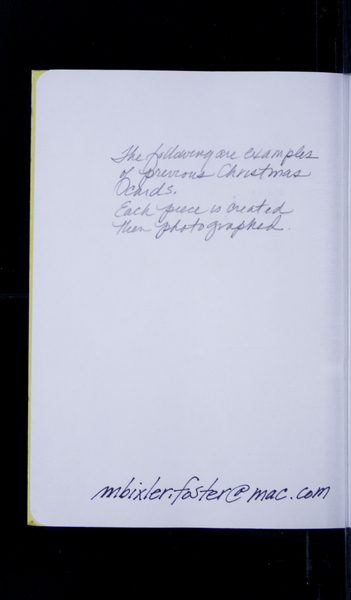 The following are examples
of previous Christmas
cards.
Each piece is created
then photographed.
mbixler.foster@mac.com